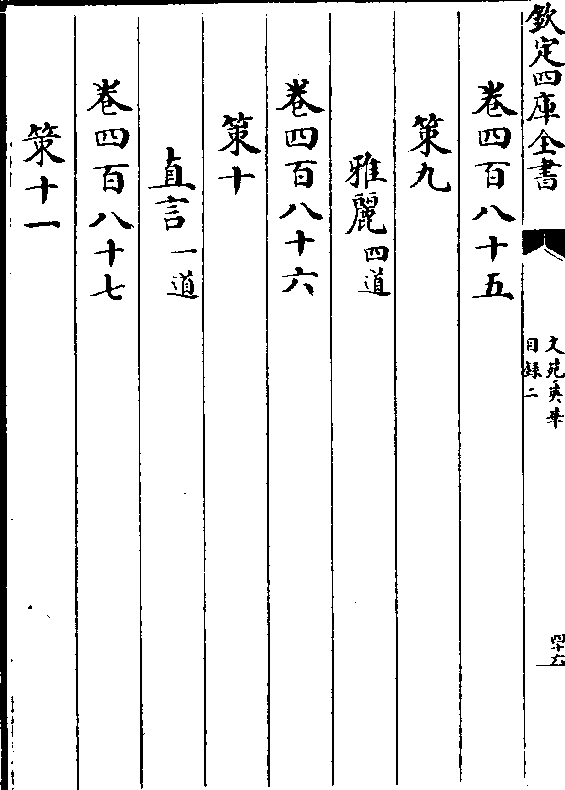 欽定四庫全書
文苑英華
目錄二
四十六
卷四百八十五
策九
雅麗四道
卷四百八十六
策十
直言一道
卷四百八十七
策十一